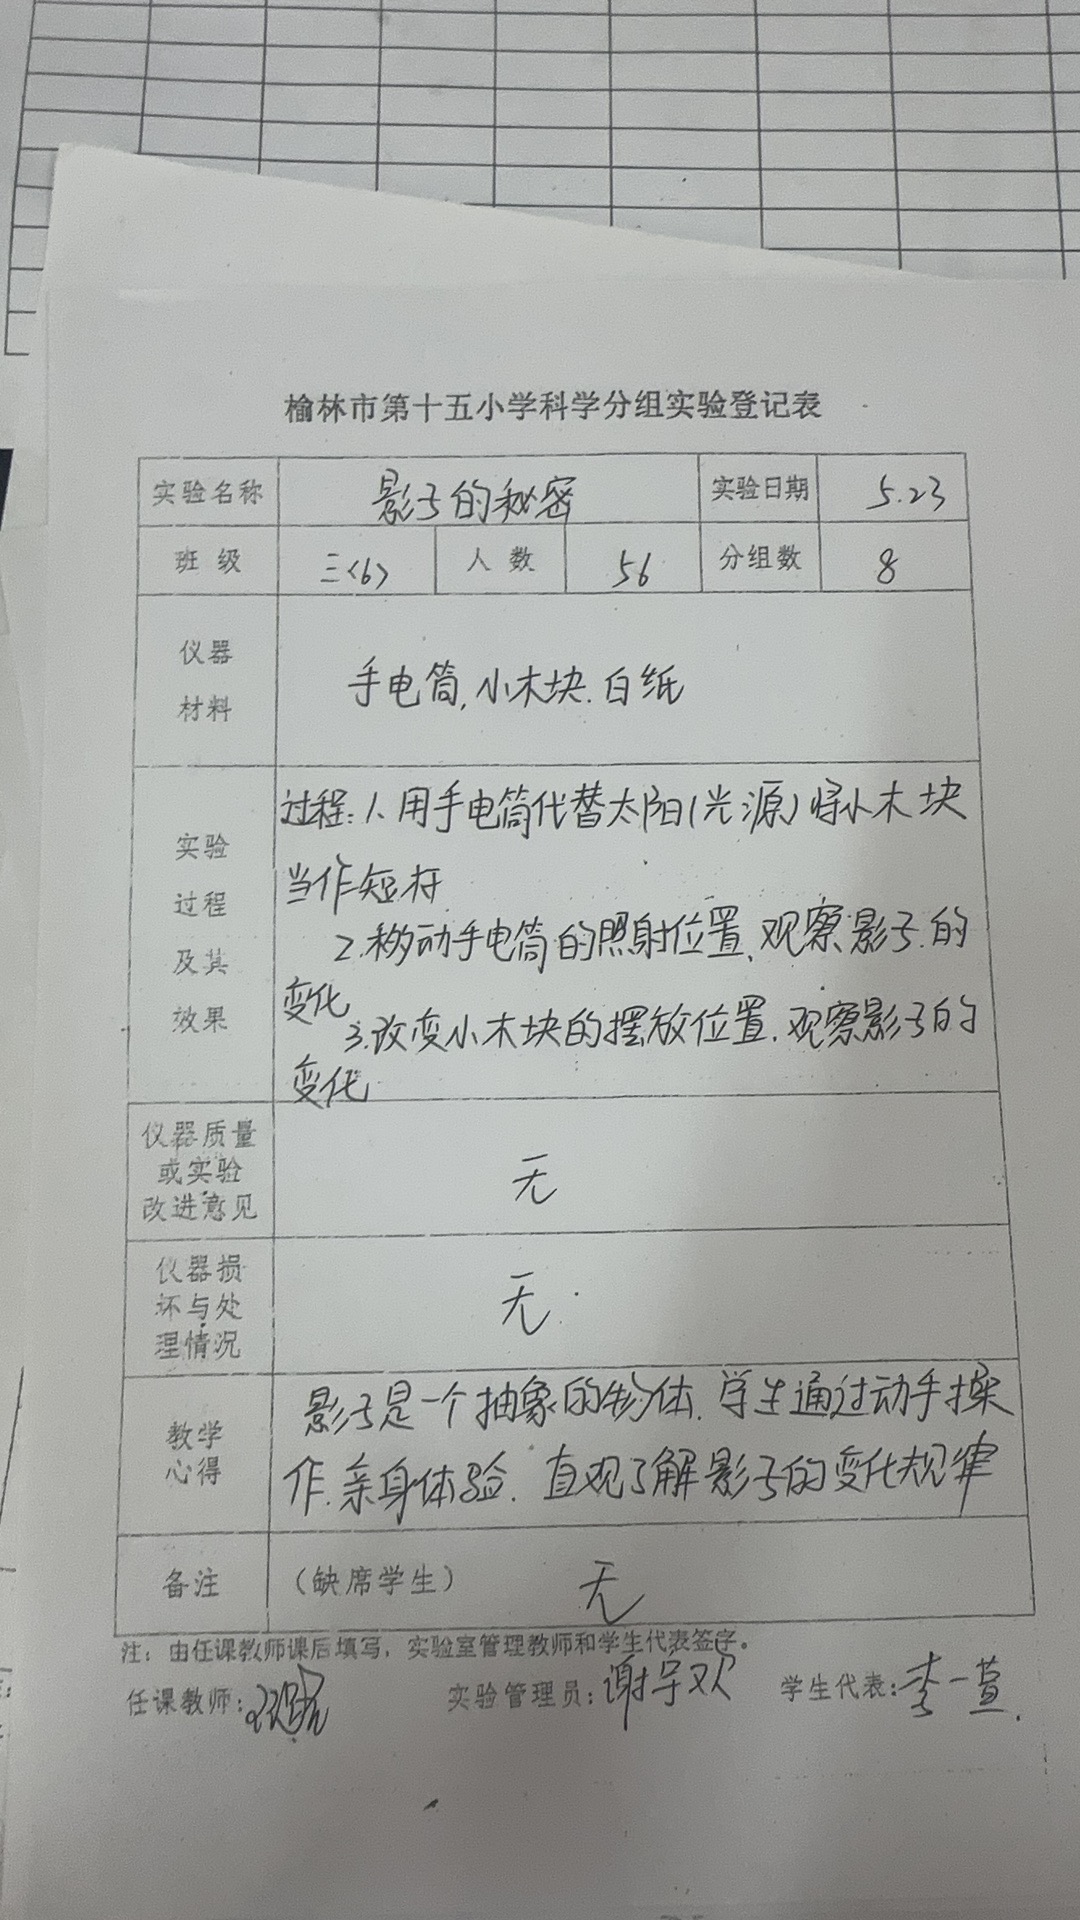 榆林市第十五小学科学分组实验登记表
实验名称 影子的秘密 实验日期 5.23
班级 三<6> 人数 56 分组数 8
仪器
材料
手电筒,小木块.白纸
实验
过程
及其
效果
过程:1、用手电筒代替太阳(光源)将小木块
当作短杆
2.移动手电筒的照射位置、观察影子的
变化
3.改变小木块的摆放位置.观察影子的
变化
仪器质量
或实验
改进意见
无
仪器损
坏与处
理情况
无
教学
心得
影子是一个抽象的物体.学生通过动手操
作.亲身体验.直观了解影子的变化规律
备注 (缺席学生) 无
注:由任课教师课后填写,实验室管理教师和学生代表签字。
任课教师: 实验管理员:谢宇欢 学生代表:李一萱